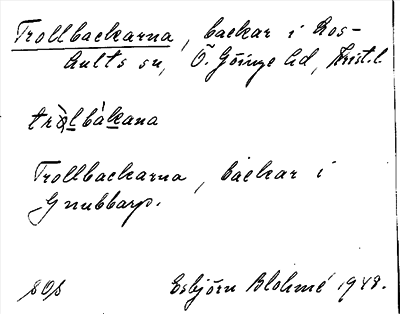 Trollbackarna, backar i Ros-
hults sn, Ö. Göinge hd, Krist. l.
tròlbákana
Trollbackarna, backar i
Gnubbarp.
Esbjörn Blohmé 1948.